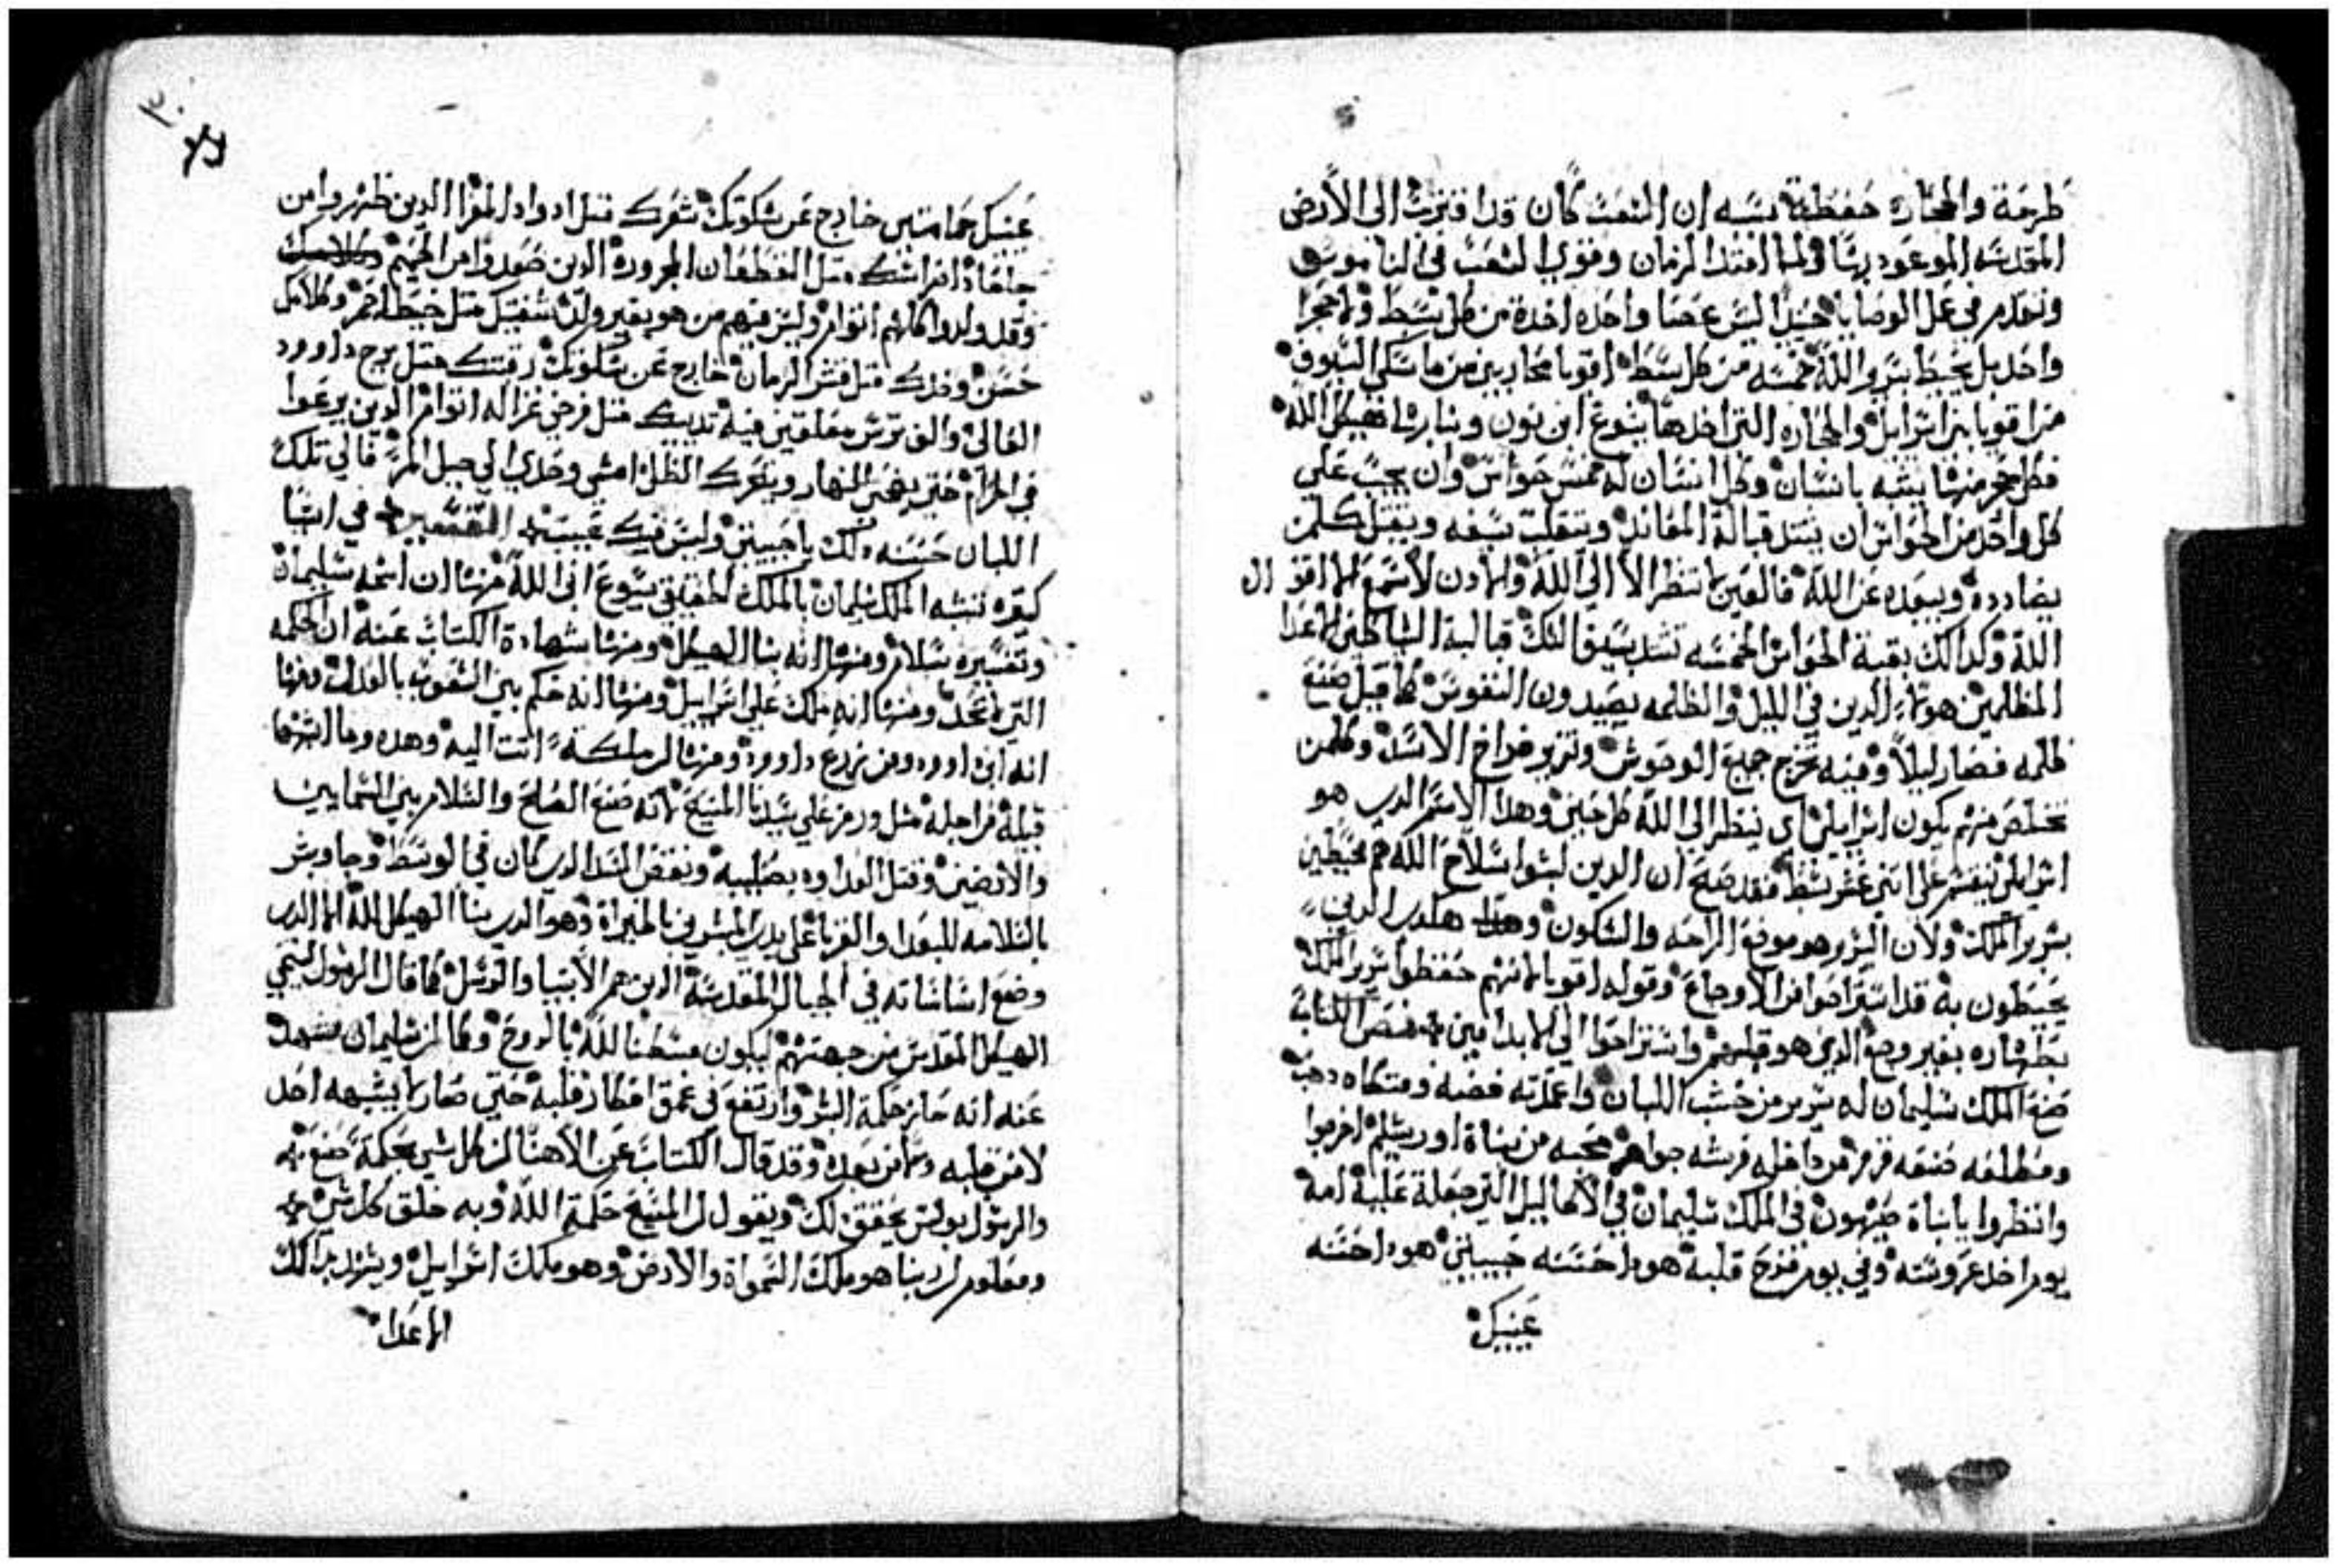 طرحة والحجاره حفظة بسببه ان الشعب كان قد اقتربت الى الأرض
المقدسه الموعود بها ولما امتد الزمان وقوي الشعب في الناموس
وتقدم في عمل الوصايا حينيذ ليس عصا واحده اخدة من كل سبط ولا حجرا
واحد بل يحيط بسرير الله خمسه من كل سبط اقويا محاربين من ماسكي السيوف
من اقويا بني اسراييل والحجاره التي اخدها يشوع ابن نون وبنا بها هيكل الله
فكل حجر منها يشبه بانسان وكل انسان له خمس حواس وان يجب علي
كل واحد من الحواس ان يستل قبالة المعاند ويتقلد سيفه ويقتل كلمن
يضادده ويبعده عن الله فالعين لا تنظر الا الي الله والادن لا تسمع الا اقوال
الله وكدالك بقية الحواس الخمسه تشد بسيفا لتلك قبالة الشياطين الاعدا
المظلمين هولاء الدين في الليل والظلمه يصيدون النفوس كما قيل صنع
ظلمه فصار ليلاً وفيه تخرج جميع الوحوش وتزير فراخ الاسد وكلمن
تخلص منهم يكون اسراييلي اي ينظر الي الله كل حين وهدا الاسم الدي هو
اسراييلي ينقسم علي اتني عشر سبط فقد صح ان الدين لبسوا سلاح الله هم محيطين
بسرير الملك ولان السرير هو موضع الراحه والسكون هكدي الدين
يحيطون به قد استراحوا من الاوجاع وقوله اقويا لانهم حفظوا سرير الملك
بطهاره بغير وجع الدي هو قلبهم واستراحوا الي الابد امين فص الكتاب
صنع الملك سليمان له سرير من خشب اللبان واعمدته فضه ومتكاه دهب
ومطلعه صنعه قرمز من داخله فرشه جواهر محبه من بناة اورشليم اخرجوا
وانظروا يا بناة صهيون في الملك سليمان في الاكاليل التي جعلة عليه امه
يوم داخل عروسته وفي يوم فرح قلبه هودا حسنه حبيبتي هودا حسنه
عينيك
عينيك حمامتين خارج عن سكوتك شعرك متل ادواد المعزا الدين ظهروا من
جلعاد اسنانك متل القطعان المجروده الدين صعدوا من الحميم
وقد ولدوا كلهم اتوام وليس فيهم من هو بغير ولد شفتيك متل خيط احمر وكلامك
حسن وخدك متل قشر الرمان خارج عن سكوتك رقبتك متل برج داوود
العالي والف ترس معلقين فيه تدييك متل فرخي غزاله اتوام الدين يرعوا
في المرام حتي يضي النهار ويتحرك الظل امشي وحدي الي جبل المر فالي تلك
اللبان حسنه كلك يا حبيبتي وليس فيك عيب التفسير في اشيا
كتيره تشبه الملك سليمان بالملك الحقاني يسوع ابن الله منها ان اسمه سليمان
وتفسيره سلام ومنها انه بنا الهيكل ومنها بشهادة الكتاب عنه ان الحكمه
التي لا تحد ومنها انه ملك علي اسراييل ومنها انه حكم بين الشعوب بالعدل ومنها
انه ابن داوود ومن زرع داوود ومنها ان ملكة اتت اليه وهده وما اشبهها
قيلة من اجله متل ورمز علي سيدنا المسيح لانه صنع الصلح والسلام بين السماييين
والارضيين وقتل العداوه بصليبه ونقض السد الدي كان في الوسط وجا وبشر
بالسلامه للبعدا والقربا علي يدي المبشرين بالخيراة وهو الدي بنا الهيكل لله الدي
وضع اساساته في الجبال المقدسة الدين هم الأنبيا والرسل كما قال الرسول لتنمي
الهيكل المقدس من جهتهم ليكون مسكناً لله بالروح وكما ان سليمان مشهد
عنه انه حاز حكمة البشر وارتفع في عمق افكار قلبه حتي صار لا يشبهه احد
لا من قبله ولا من بعده وقد قال الكتاب عن الاهنا ان كل شي بحكمة صنع
والرسول بولس يحقق لك ويقول ان المسيح حكمة الله وبه خلق كل شي
ومعلوم ان ربنا هو ملك السمواة والارض وهو ملك اسراييل ويشهد بدالك
الاعدا